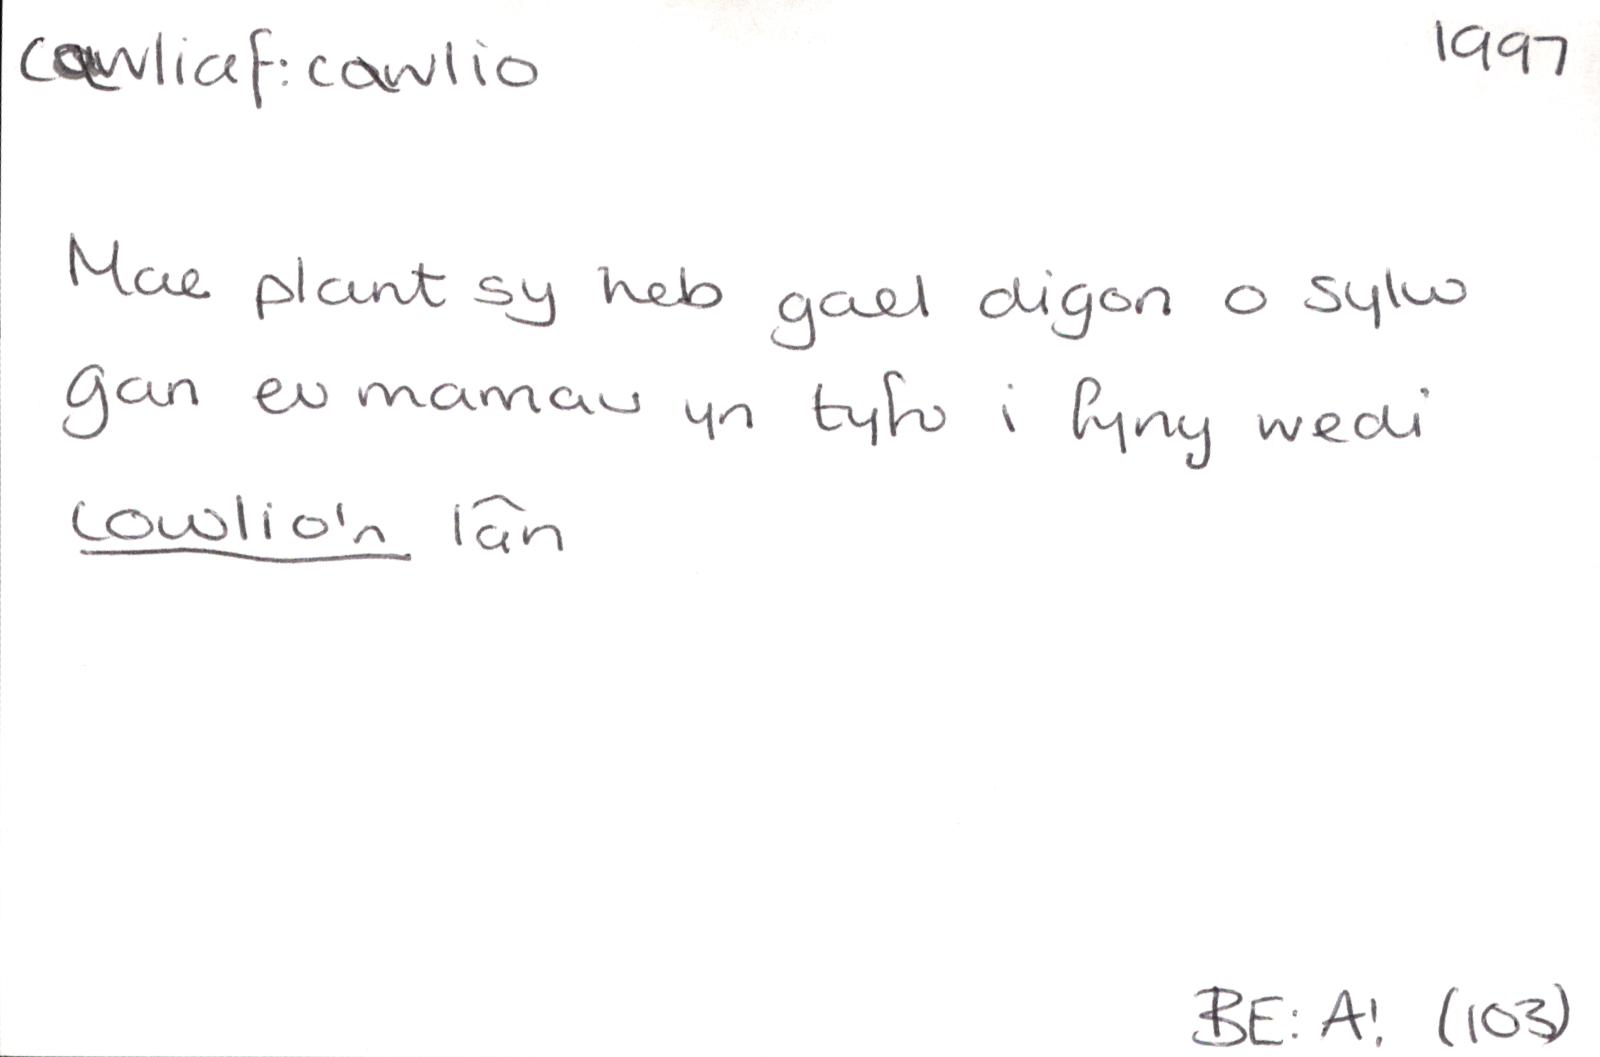 cawliaf: cawlio 1997
Mae plant sy heb gael digon o sylw
gan eu mamau yn tyfu i fyny wedi
cowlio'n lân
BE: A! (103)